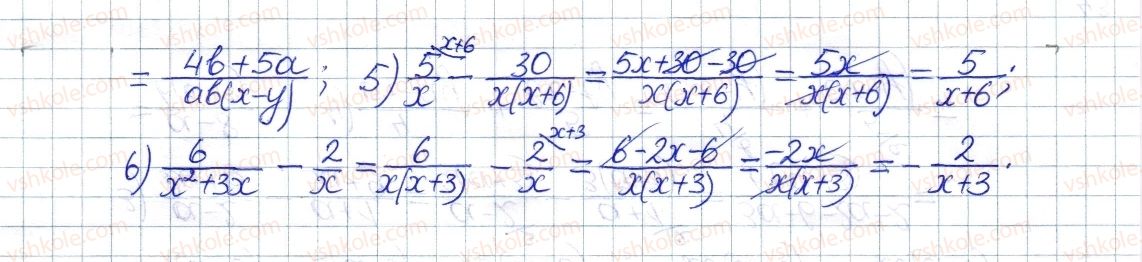 = (4b+5a)/(ab(x-y)); 5) 5/x ^(x+6) - 30/(x(x+6)) = (5x+30-30)/(x(x+6)) = 5x/(x(x+6)) = 5/(x+6);
6) 6/(x²+3x) - 2/x = 6/(x(x+3)) - 2/x ^(x+3) = (6-2x-6)/(x(x+3)) = -2x/(x(x+3)) = -2/(x+3).